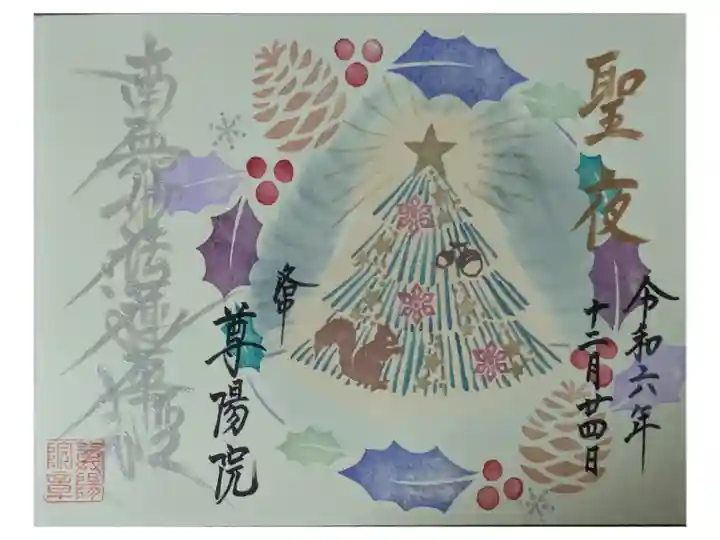 聖夜
令和六年
十二月廿四日
洛中
尊陽院
南無妙法蓮華経